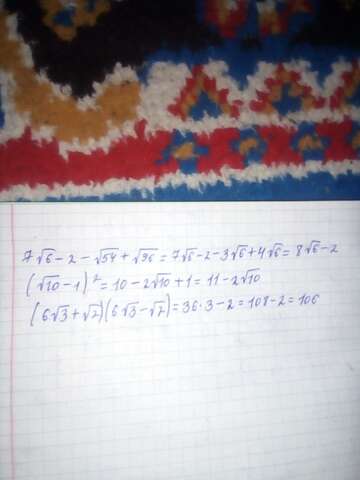 7√6 - 2 - √54 + √96 = 7√6 - 2 - 3√6 + 4√6 = 8√6 - 2
(√10 - 1)² = 10 - 2√10 + 1 = 11 - 2√10
(6√3 + √2)(6√3 - √2) = 36·3 - 2 = 108 - 2 = 106